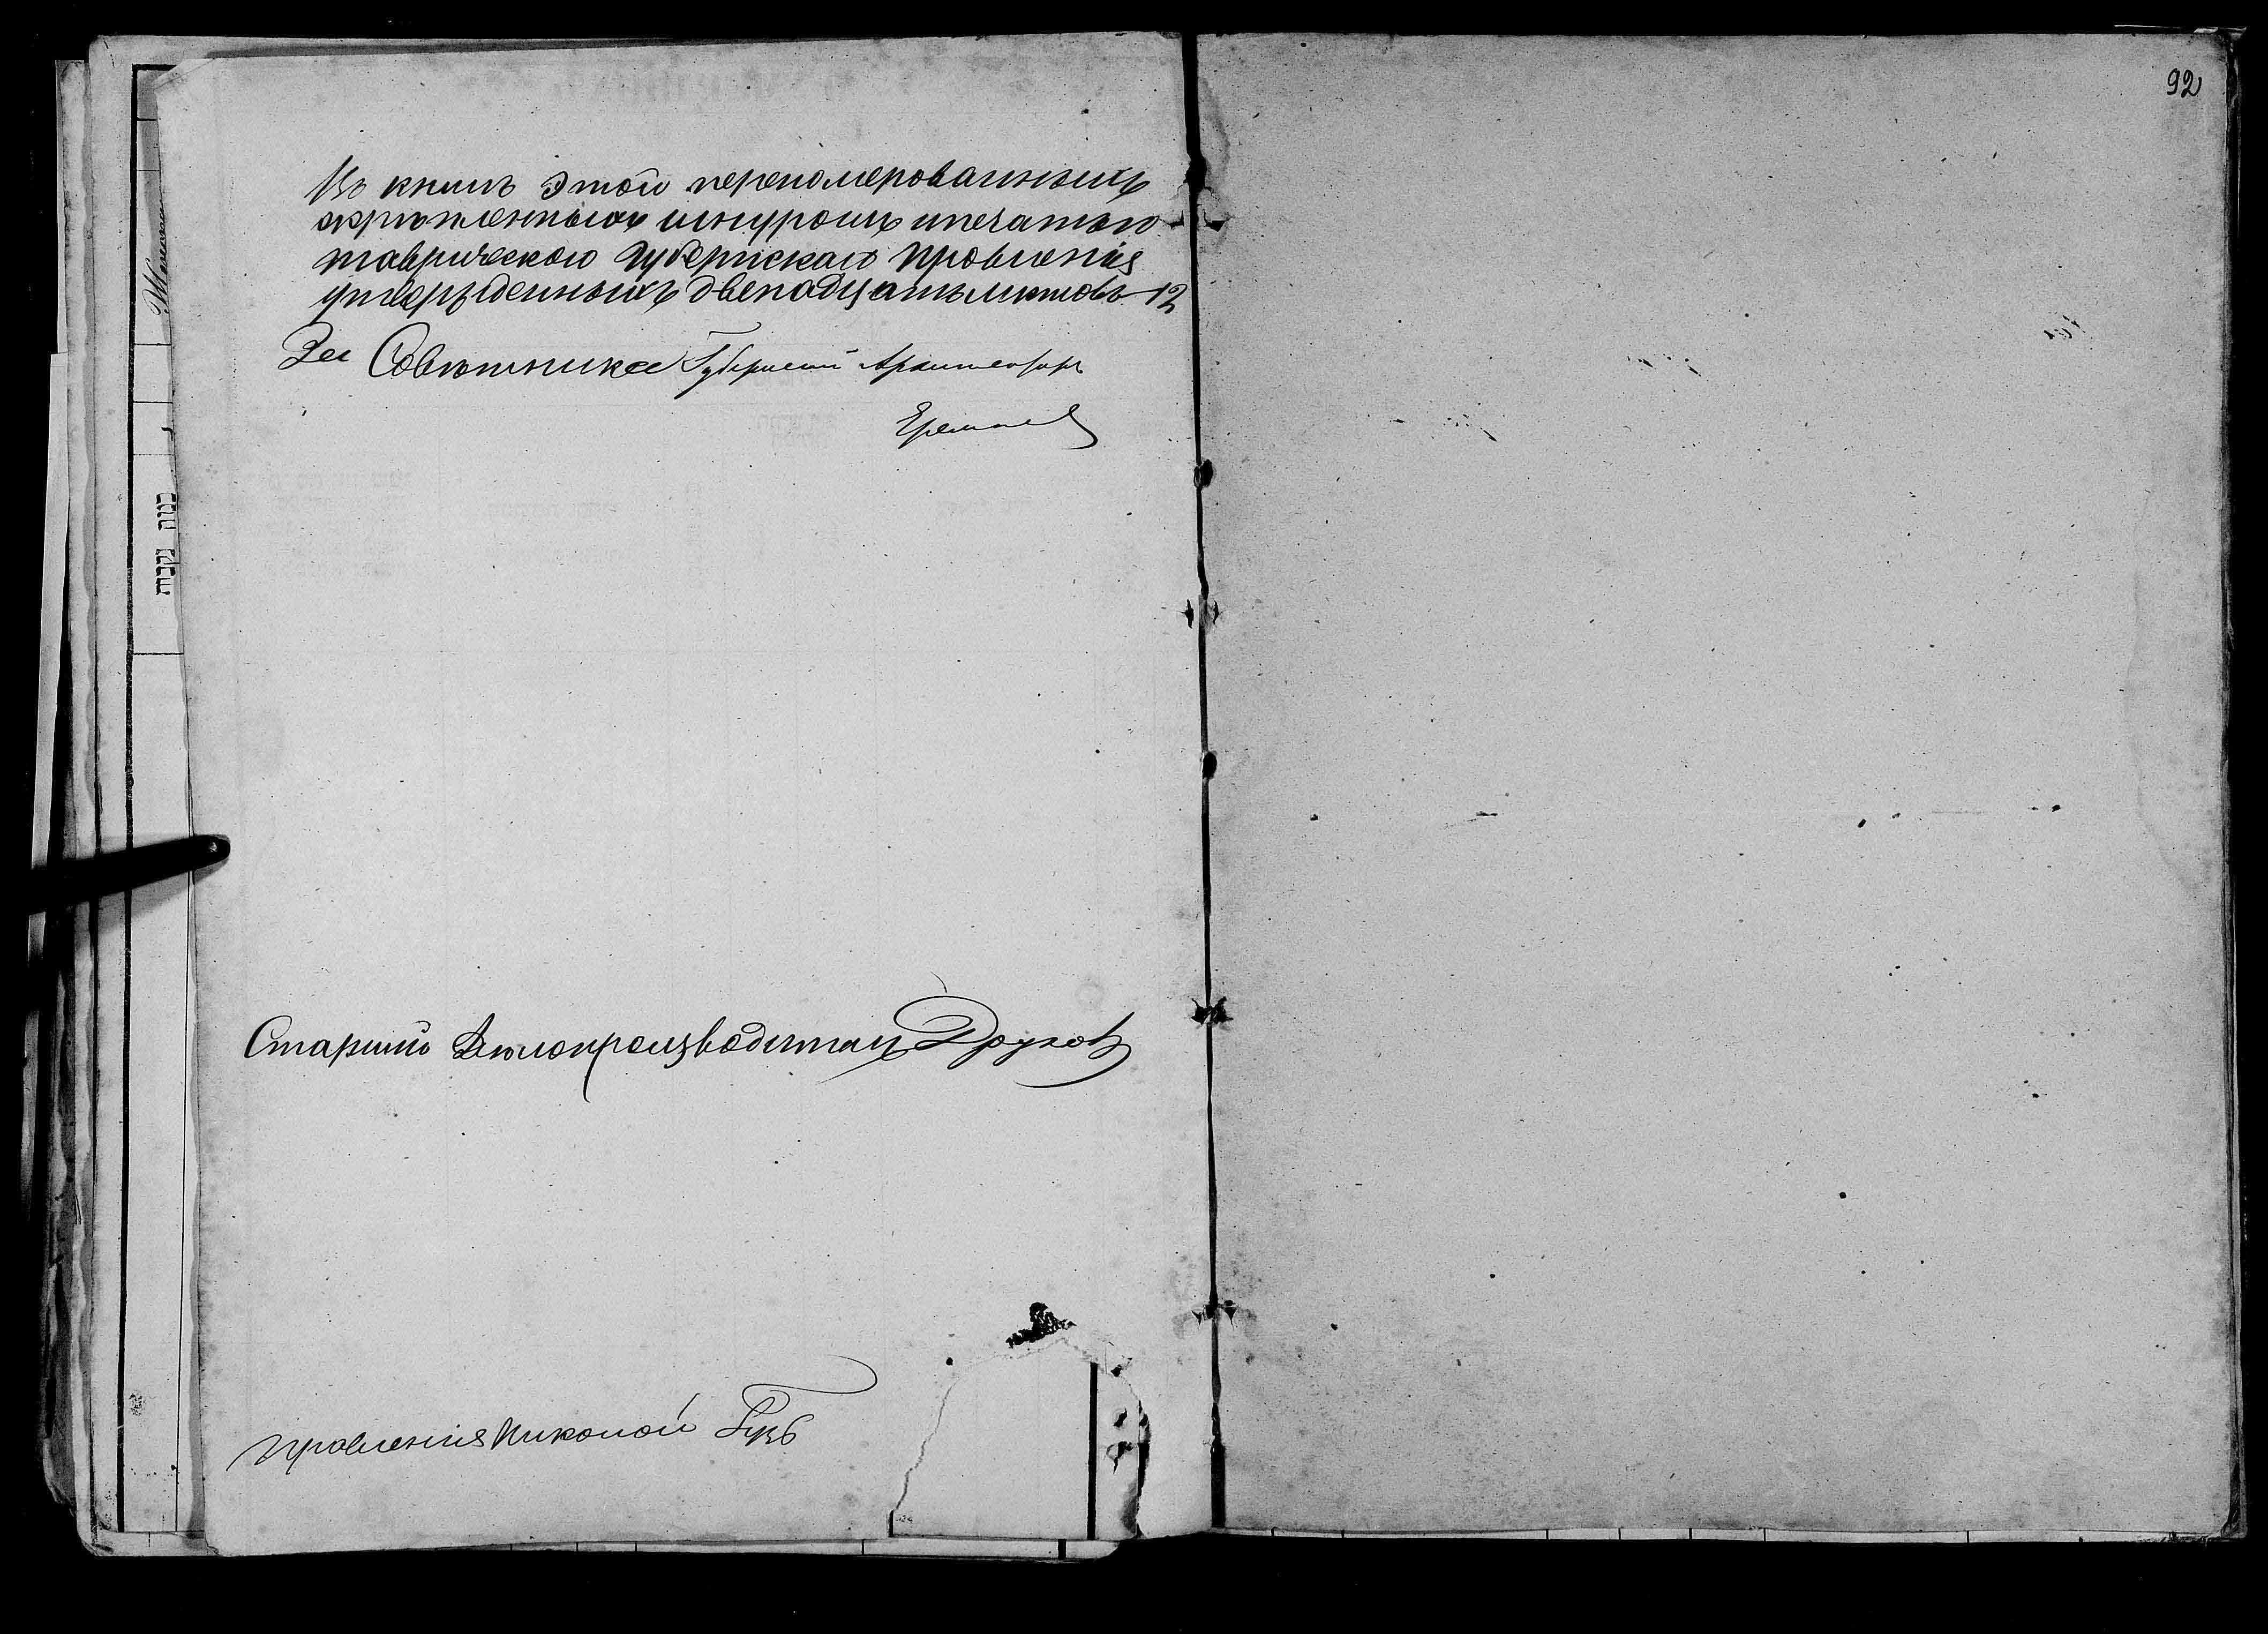 92
Въ книгѣ этой переномерованныхъ
скрѣпленныхъ шнуромъ и печатью
таврическаго Губернскаго Правленія
утвержденныхъ двенадцать листовъ 12
За Совѣтника Губернскій Архитекторъ
Старшій Дѣлопроизводитель Друговъ
Правленія